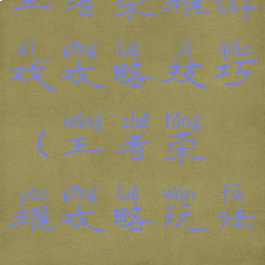 王者荣耀游
xì gōng lüè jì qiǎo
戏攻略技巧
wáng zhě róng
（王者荣
yào gōng lüè wán fǎ
耀攻略玩法